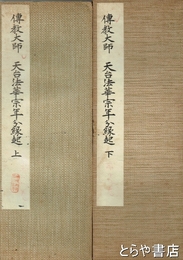 傳教大師 天台法華宗年分縁起 上
傳教大師 天台法華宗年分縁起 下
とらや書店